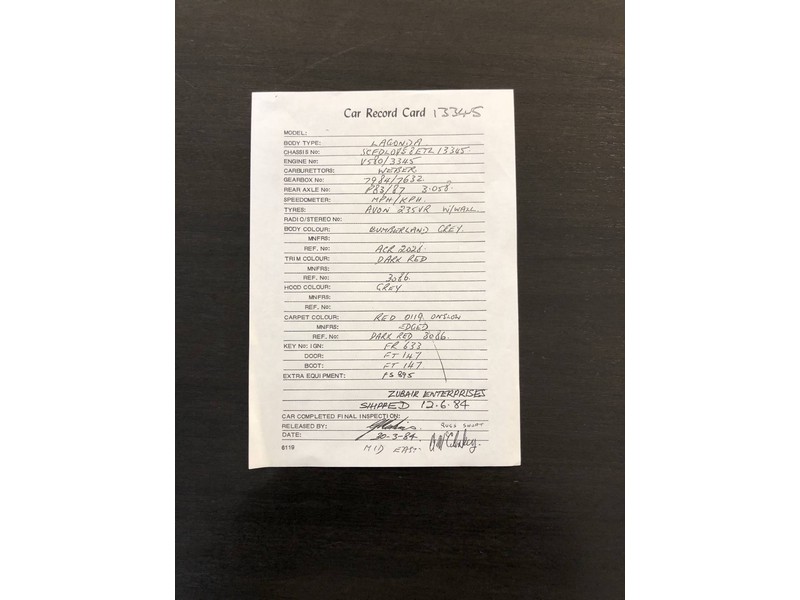 Car Record Card 13345
MODEL:
BODY TYPE: LAGONDA
CHASSIS No: 13345
ENGINE No: V580/3345
CARBURETTORS: WEBER
GEARBOX No: 7984/7632
REAR AXLE No: P83/87 3.058.
SPEEDOMETER: MPH/KPH.
TYRES: AVON 235VR W/WALL
RADIO/STEREO No:
BODY COLOUR: GREY.
MNFRS:
REF. No: ACR 2028.
TRIM COLOUR: DARK RED
MNFRS:
REF. No: 3086.
HOOD COLOUR: GREY
MNFRS:
REF. No:
CARPET COLOUR: RED 0119 ONSLOW
MNFRS: EDGED
REF. No: DARK RED 3086.
KEY No: IGN: FR 633
DOOR: FT 147
BOOT: FT 147
EXTRA EQUIPMENT: PS 895
ZUBAIR ENTERPRISES
SHIPPED 12.6.84
CAR COMPLETED FINAL INSPECTION:
RELEASED BY: RUGS SHORT
DATE: 20-3-84
6119 MID EAST